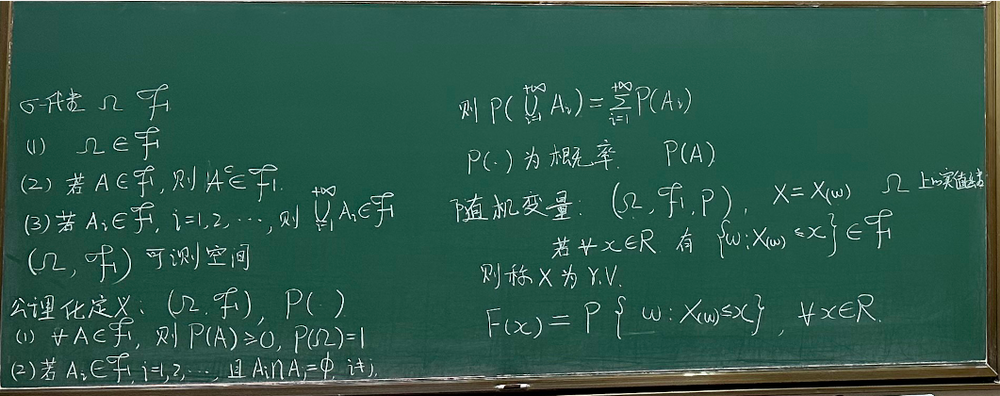 σ-代数 Ω ℱ
(1) Ω∈ℱ
(2) 若 A∈ℱ, 则 Aᶜ∈ℱ.
(3) 若 Aᵢ∈ℱ, i=1,2,⋯, 则 ⋃_{i=1}^{+∞} Aᵢ∈ℱ
(Ω, ℱ) 可测空间
公理化定义: (Ω, ℱ), P(·)
(1) ∀A∈ℱ, 则 P(A)≥0, P(Ω)=1
(2) 若 Aᵢ∈ℱ, i=1,2,⋯, 且 Aᵢ∩Aⱼ=φ, i≠j,
则 P(⋃_{i=1}^{+∞} Aᵢ)=∑_{i=1}^{+∞} P(Aᵢ)
P(·) 为概率. P(A)
随机变量: (Ω, ℱ, P), X=X(ω) Ω 上的实值函数
若 ∀x∈R 有 {ω:X(ω)≤x}∈ℱ
则称 X 为 r.v.
F(x)=P{ω:X(ω)≤x}, ∀x∈R.